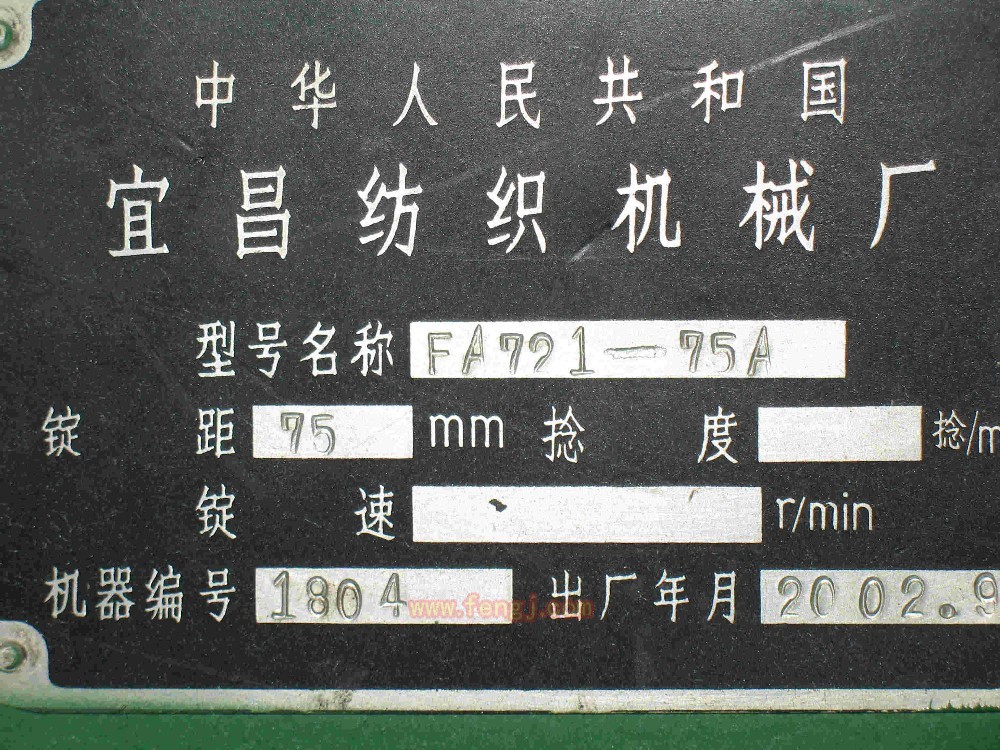 中华人民共和国
宜昌纺织机械厂
型号名称 FA721-75A
锭距 75 mm 捻度 捻/m
锭速 r/min
机器编号 1804 出厂年月 2002.9
www.fengj.com